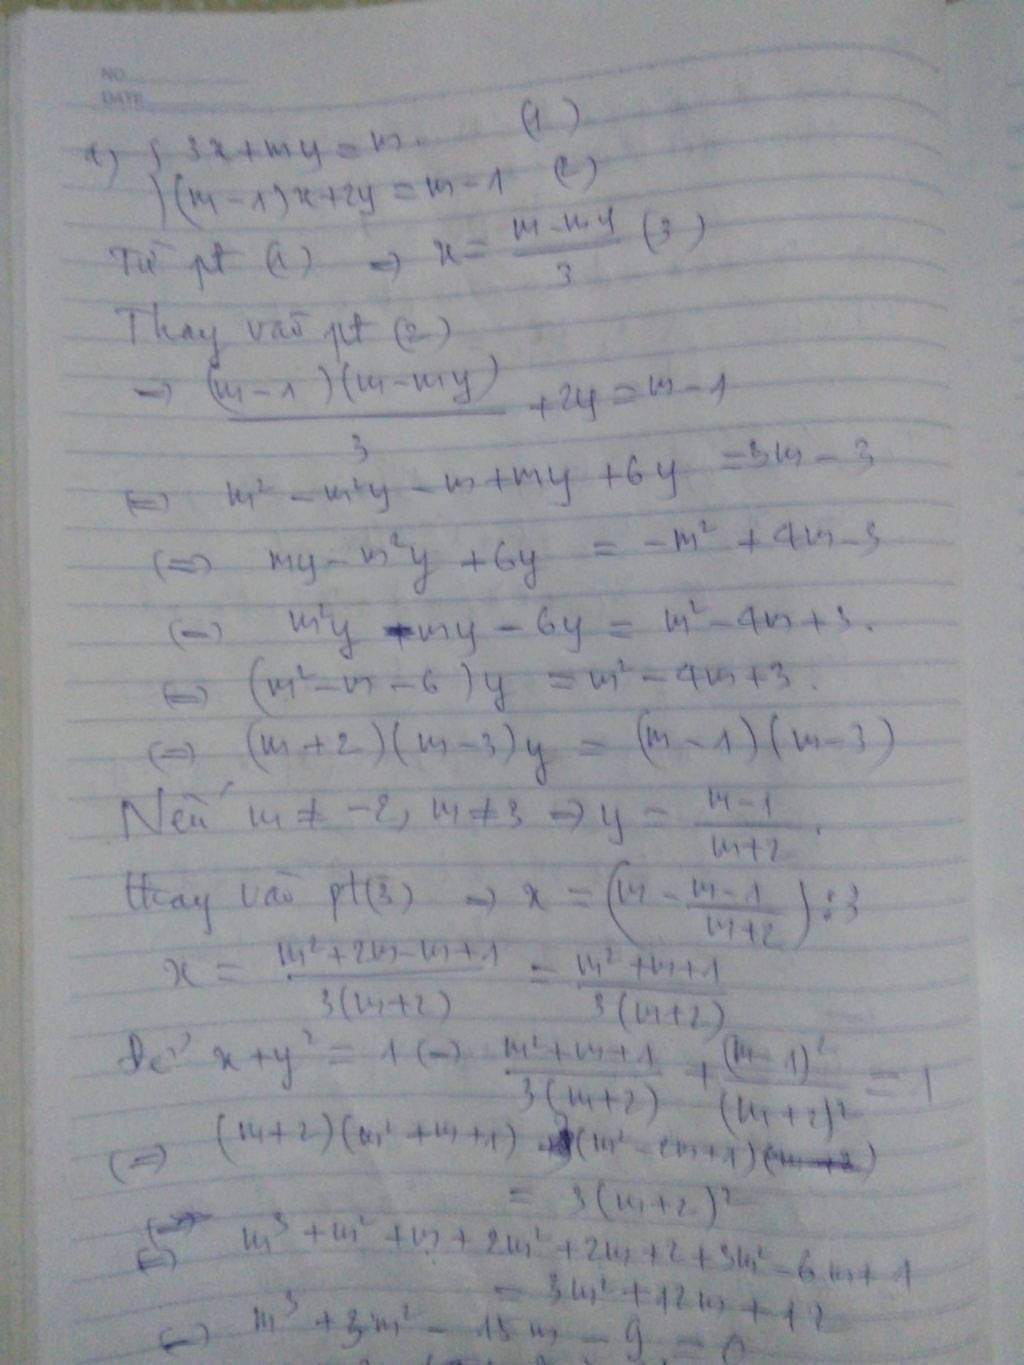 NO
DATE
1) { 3x + my = m. (1)
(m - 1)x + 2y = m - 1 (2)
Từ pt (1) => x = (m - my)/3 (3)
Thay vào pt (2)
=> (m - 1)(m - my)/3 + 2y = m - 1
<=> m² - m²y - m + my + 6y = 3m - 3
(=) my - m²y + 6y = -m² + 4m - 3
(=) m²y - my - 6y = m² - 4m + 3.
<=> (m² - m - 6)y = m² - 4m + 3.
(=) (m + 2)(m - 3)y = (m - 1)(m - 3)
Nếu m ≠ -2, m ≠ 3 => y = (m - 1)/(m + 2).
thay vào pt(3) => x = (m - (m - 1)/(m + 2)) : 3
x = (m² + 2m - m + 1)/(3(m + 2)) = (m² + m + 1)/(3(m + 2))
Để x + y² = 1 (=) (m² + m + 1)/(3(m + 2)) + (m - 1)²/(m + 2)² = 1
(=) (m + 2)(m² + m + 1) + 3(m² - 2m + 1)
= 3(m + 2)²
(=) m³ + m² + m + 2m² + 2m + 2 + 3m² - 6m + 1
= 3m² + 12m + 12
(=) m³ + 3m² - 15m - 9 = 0